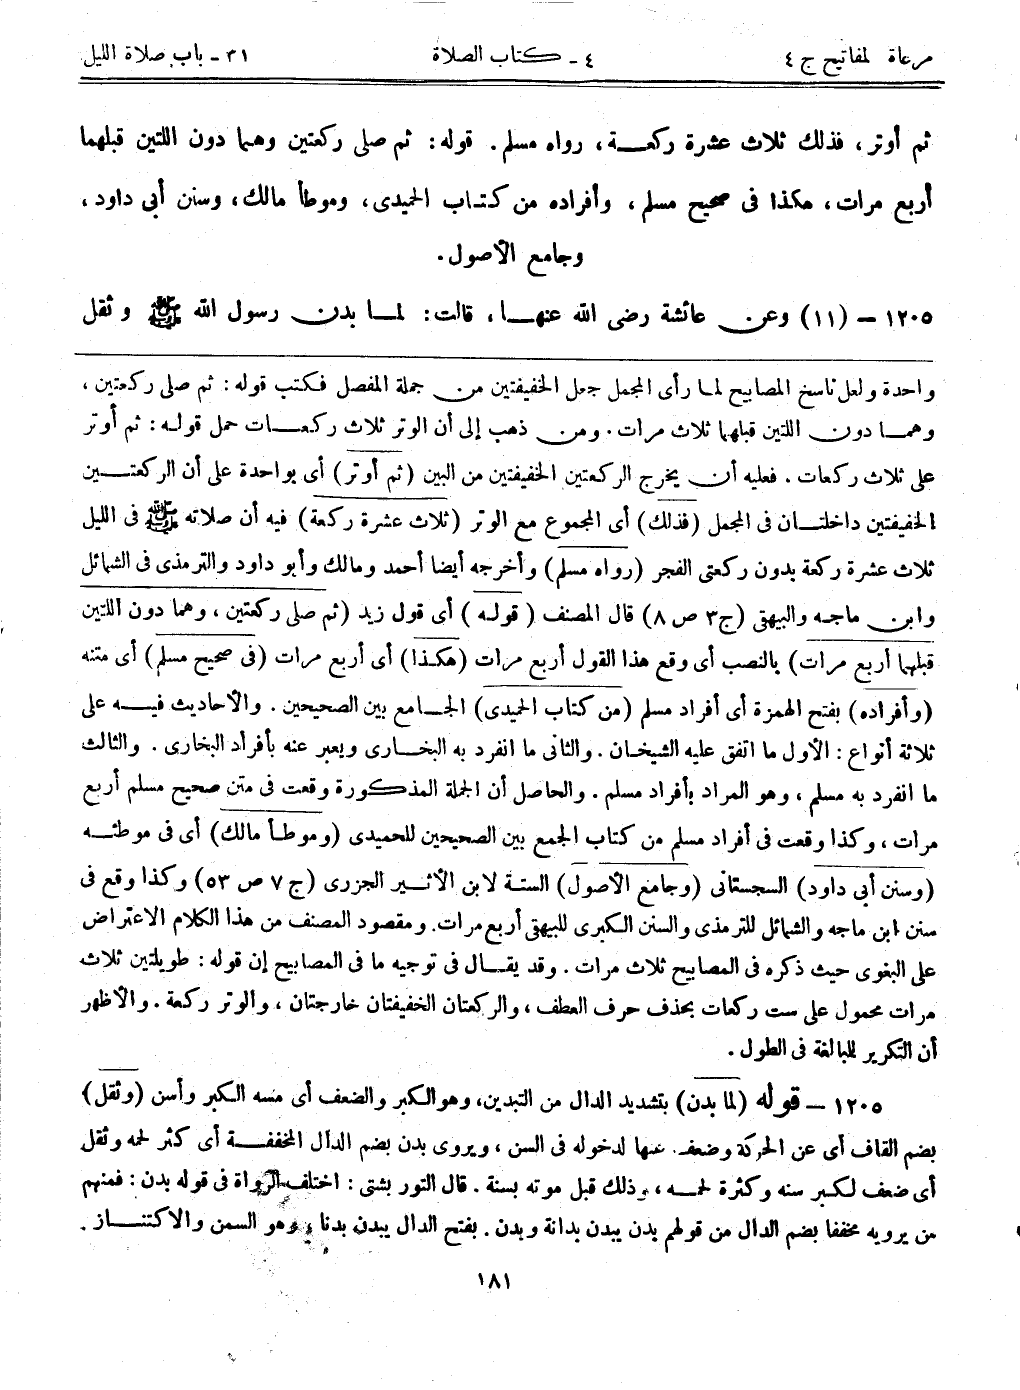 مرعاة المفاتيح ج ٤
٤ - كتاب الصلاة
٣١ - باب صلاة الليل
ثم أوتر، فذلك ثلاث عشرة ركعة، رواه مسلم. قوله: ثم صلى ركعتين وهما دون اللتين قبلهما
أربع مرات، هكذا فى صحيح مسلم، وأفراده من كتاب الحميدى، وموطأ مالك، وسنن أبى داود،
وجامع الأصول.
١٢٠٥ - (١١) وعن عائشة رضى الله عنها، قالت: لما بدن رسول الله ﷺ وثقل
واحدة ولعل ناسخ المصابيح لما رأى المجمل جعل الخفيفتين من جملة المفصل فكتب قوله: ثم صلى ركعتين،
وهما دون اللتين قبلهما ثلاث مرات. ومن ذهب إلى أن الوتر ثلاث ركعات حمل قوله: ثم أوتر
على ثلاث ركعات. فعليه أن يخرج الركعتين الخفيفتين من البين (ثم أوتر) أى بواحدة على أن الركعتين
الخفيفتين داخلتان فى المجمل (فذلك) أى المجموع مع الوتر (ثلاث عشرة ركعة) فيه أن صلاته ﷺ فى الليل
ثلاث عشرة ركعة بدون ركعتى الفجر (رواه مسلم) وأخرجه أيضا أحمد ومالك وأبو داود والترمذى فى الشمائل
وابن ماجه والبيهقى (ج٣ ص ٨) قال المصنف (قوله) أى قول زيد (ثم صلى ركعتين، وهما دون اللتين
قبلهما أربع مرات) بالنصب أى وقع هذا القول أربع مرات (هكذا) أى أربع مرات (فى صحيح مسلم) أى متنه
(وأفراده) بفتح الهمزة أى أفراد مسلم (من كتاب الحميدى) الجامع بين الصحيحين. والأحاديث فيه على
ثلاثة أنواع: الأول ما اتفق عليه الشيخان. والثانى ما انفرد به البخارى ويعبر عنه بأفراد البخارى. والثالث
ما انفرد به مسلم، وهو المراد بأفراد مسلم. والحاصل أن الجملة المذكورة وقعت فى متن صحيح مسلم أربع
مرات، وكذا وقعت فى أفراد مسلم من كتاب الجمع بين الصحيحين للحميدى (وموطأ مالك) أى فى موطئه
(وسنن أبى داود) السجستانى (وجامع الأصول) الستة لابن الأثير الجزرى (ج ٧ ص ٥٣) وكذا وقع فى
سنن ابن ماجه والشمائل للترمذى والسنن الكبرى للبيهقى أربع مرات. ومقصود المصنف من هذا الكلام الاعتراض
على البغوى حيث ذكره فى المصابيح ثلاث مرات. وقد يقال فى توجيه ما فى المصابيح إن قوله: طويلتين ثلاث
مرات محمول على ست ركعات بحذف حرف العطف، والركعتان الخفيفتان خارجتان، والوتر ركعة. والأظهر
أن التكرير للمبالغة فى الطول.
١٢٠٥ - قوله (لما بدن) بتشديد الدال من التبدين، وهو الكبر والضعف أى مسه الكبر وأسن (وثقل)
بضم القاف أى عن الحركة وضعف عنها لدخوله فى السن، ويروى بدن بضم الدال المخففة أى كثر لحمه وثقل
أى ضعف لكبر سنه وكثرة لحمه، وذلك قبل موته بسنة. قال التوربشتى: اختلف الرواة فى قوله بدن: فمنهم
من يرويه مخففا بضم الدال من قولهم بدن يبدن بدانة وبدن. بفتح الدال يبدن بدنا، وهو السمن والاكتناز.
١٨١